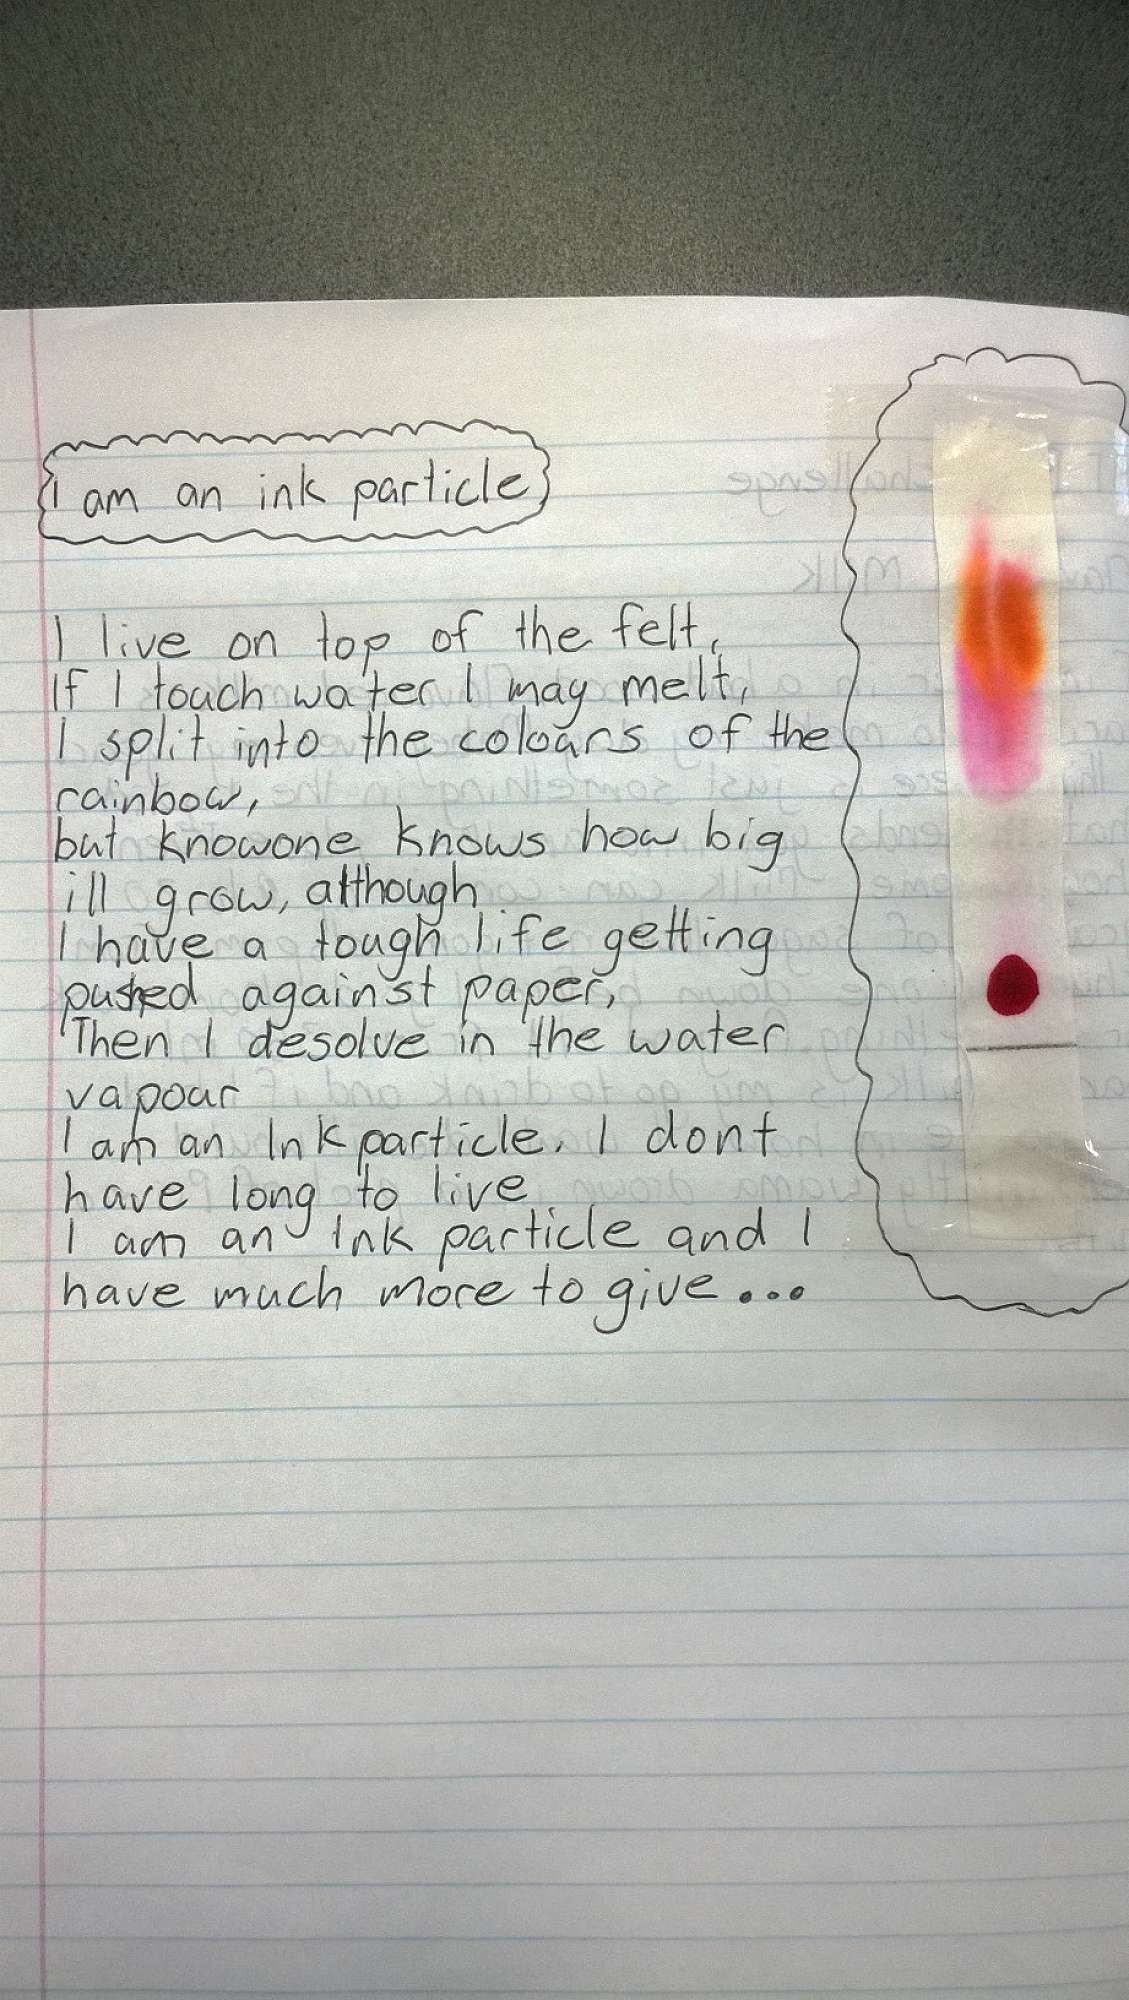 I am an ink particle
I live on top of the felt,
If I touch water I may melt,
I split into the colours of the
rainbow,
but knowone knows how big
ill grow, although
I have a tough life getting
pushed against paper,
Then I desolve in the water
vapour
I am an Ink particle. I dont
have long to live
I am an Ink particle and I
have much more to give...